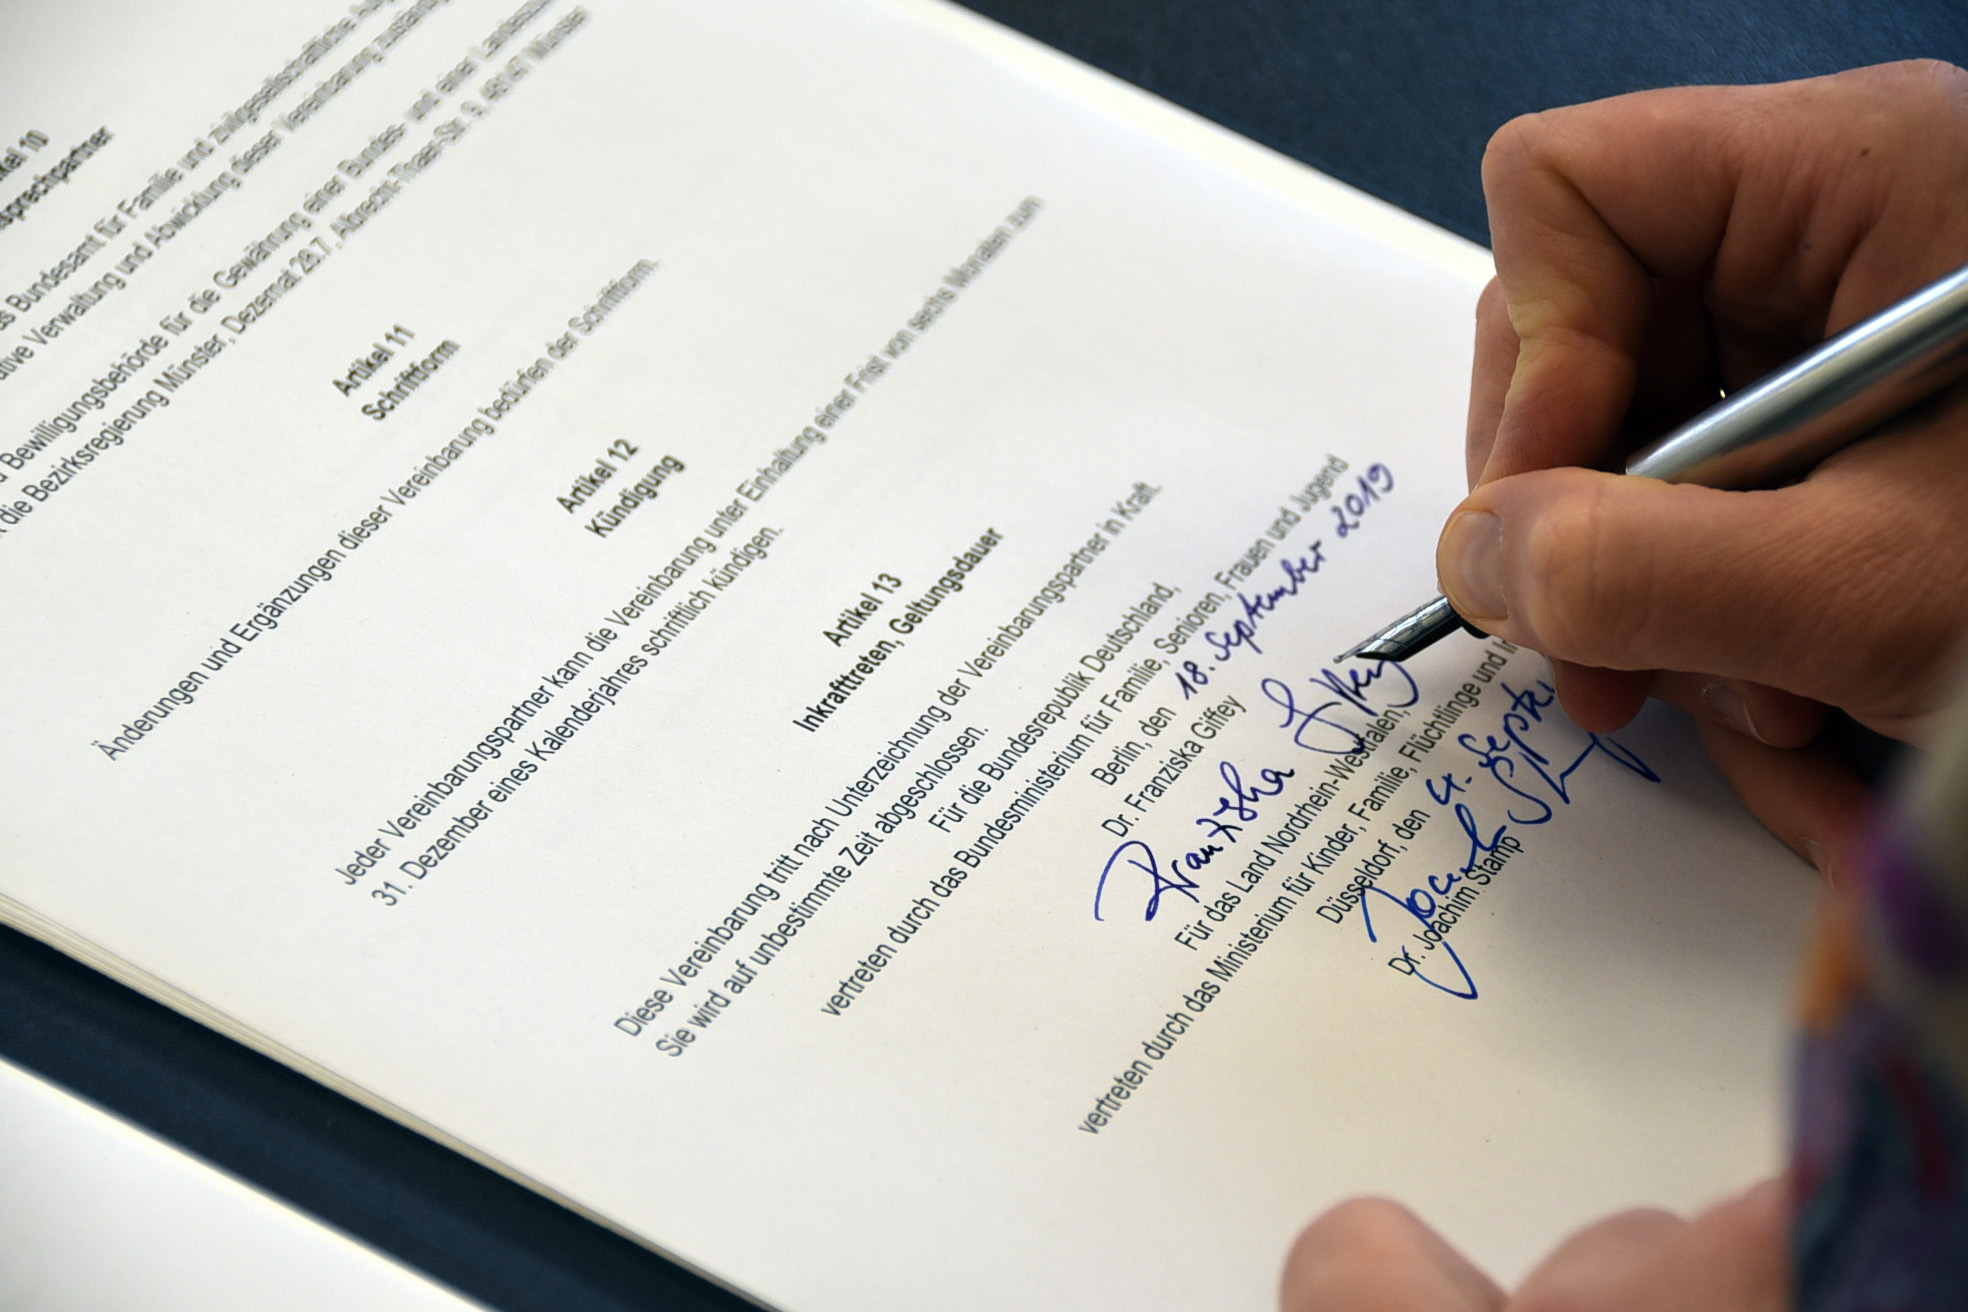 Artikel 10
Ansprechpartner
das Bundesamt für Familie und zivilgesellschaftliche
Verwaltung und Abwicklung dieser Vereinbarung
Bewilligungsbehörde für die Gewährung einer Bundes- und einer
die Bezirksregierung Münster, Dezernat 28.7, Albrecht-Thaer-Str. 9, 48147 Münster
Artikel 11
Schriftform
Änderungen und Ergänzungen dieser Vereinbarung bedürfen der Schriftform.
Artikel 12
Kündigung
Jeder Vereinbarungspartner kann die Vereinbarung unter Einhaltung einer Frist von sechs Monaten zum
31. Dezember eines Kalenderjahres schriftlich kündigen.
Artikel 13
Inkrafttreten, Geltungsdauer
Diese Vereinbarung tritt nach Unterzeichnung der Vereinbarungspartner in Kraft.
Sie wird auf unbestimmte Zeit abgeschlossen.
Für die Bundesrepublik Deutschland,
vertreten durch das Bundesministerium für Familie, Senioren, Frauen und Jugend
Berlin, den 18. September 2019
Dr. Franziska Giffey
Franziska Giffey
Für das Land Nordrhein-Westfalen,
vertreten durch das Ministerium für Kinder, Familie, Flüchtlinge und
Düsseldorf, den 4. Septe
Joachim Stamp
Dr. Joachim Stamp